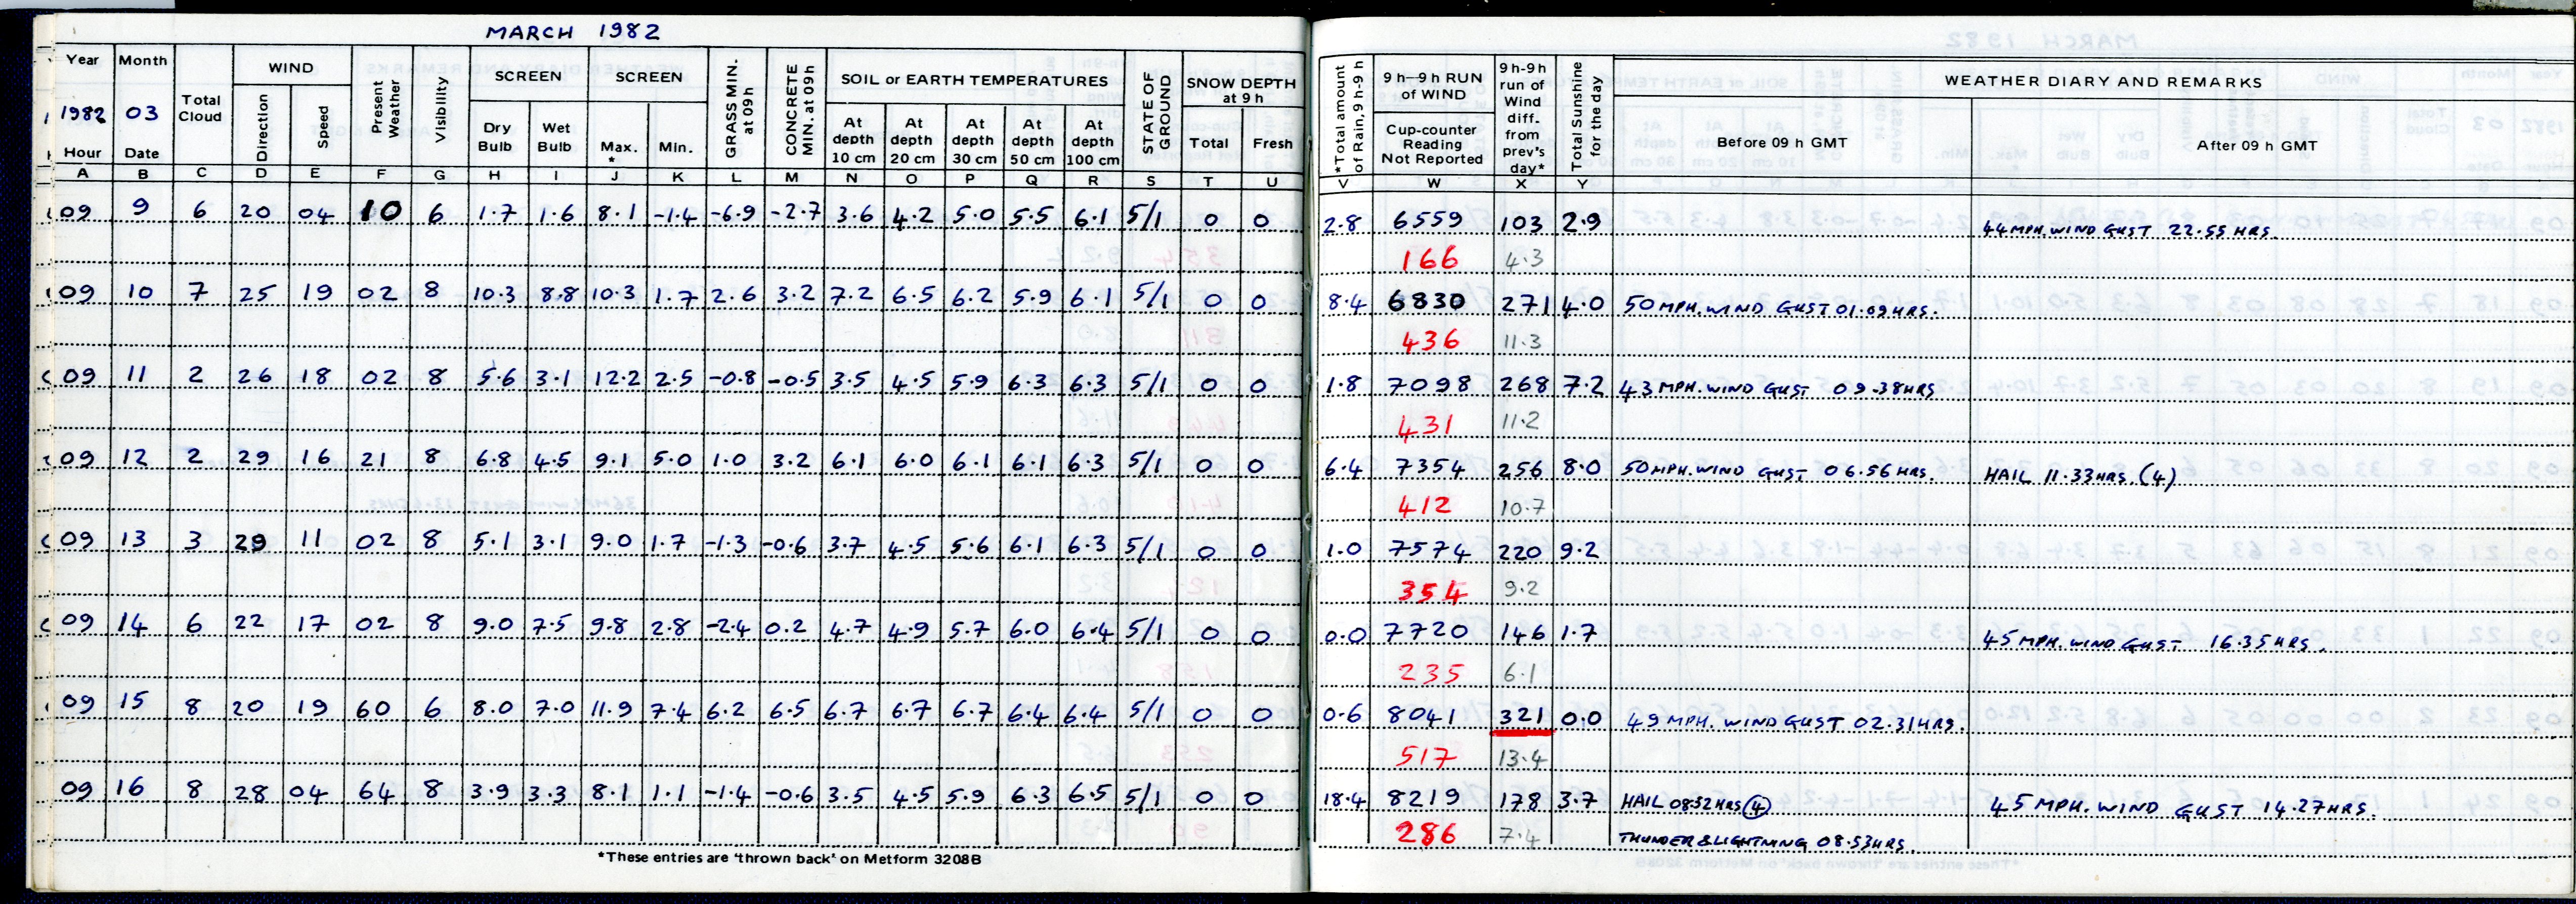 MARCH 1982
Year Month Total Cloud WIND Present Weather Visibility SCREEN SCREEN GRASS MIN. at 09h CONCRETE MIN. at 09h SOIL or EARTH TEMPERATURES STATE OF GROUND SNOW DEPTH at 9 h *Total amount of Rain, 9 h-9 h 9 h-9 h RUN of WIND 9 h-9h run of Wind diff. from prev's day* Total Sunshine for the day WEATHER DIARY AND REMARKS
1982 03 Direction Speed Dry Bulb Wet Bulb Max. * Min. At depth 10 cm At depth 20 cm At depth 30 cm At depth 50 cm At depth 100 cm Total Fresh Cup-counter Reading Not Reported Before 09 h GMT After 09 h GMT
Hour Date
A B C D E F G H I J K L M N O P Q R S T U V W X Y
09 9 6 20 04 10 6 1.7 1.6 8.1 -1.4 -6.9 -2.7 3.6 4.2 5.0 5.5 6.1 5/1 0 0 2.8 6559 103 2.9 44 MPH. WIND GUST 22.55 HRS.
166 4.3
09 10 7 25 19 02 8 10.3 8.8 10.3 1.7 2.6 3.2 7.2 6.5 6.2 5.9 6.1 5/1 0 0 8.4 6830 271 4.0 50 MPH. WIND GUST 01.09 HRS.
436 11.3
09 11 2 26 18 02 8 5.6 3.1 12.2 2.5 -0.8 -0.5 3.5 4.5 5.9 6.3 6.3 5/1 0 0 1.8 7098 268 7.2 43 MPH. WIND GUST 09.38 HRS
431 11.2
09 12 2 29 16 21 8 6.8 4.5 9.1 5.0 1.0 3.2 6.1 6.0 6.1 6.1 6.3 5/1 0 0 6.4 7354 256 8.0 50 MPH. WIND GUST 06.56 HRS. HAIL 11.33 HRS. (4)
412 10.7
09 13 3 29 11 02 8 5.1 3.1 9.0 1.7 -1.3 -0.6 3.7 4.5 5.6 6.1 6.3 5/1 0 0 1.0 7574 220 9.2
354 9.2
09 14 6 22 17 02 8 9.0 7.5 9.8 2.8 -2.4 0.2 4.7 4.9 5.7 6.0 6.4 5/1 0 0 0.0 7720 146 1.7 45 MPH. WIND GUST 16.35 HRS.
235 6.1
09 15 8 20 19 60 6 8.0 7.0 11.9 7.4 6.2 6.5 6.7 6.7 6.7 6.4 6.4 5/1 0 0 0.6 8041 321 0.0 49 MPH. WIND GUST 02.31 HRS.
517 13.4
09 16 8 28 04 64 8 3.9 3.3 8.1 1.1 -1.4 -0.6 3.5 4.5 5.9 6.3 6.5 5/1 0 0 18.4 8219 178 3.7 HAIL 0832 HRS (4) 45 MPH. WIND GUST 14.27 HRS.
286 7.4 THUNDER & LIGHTNING 08.53 HRS.
*These entries are 'thrown back' on Metform 3208B